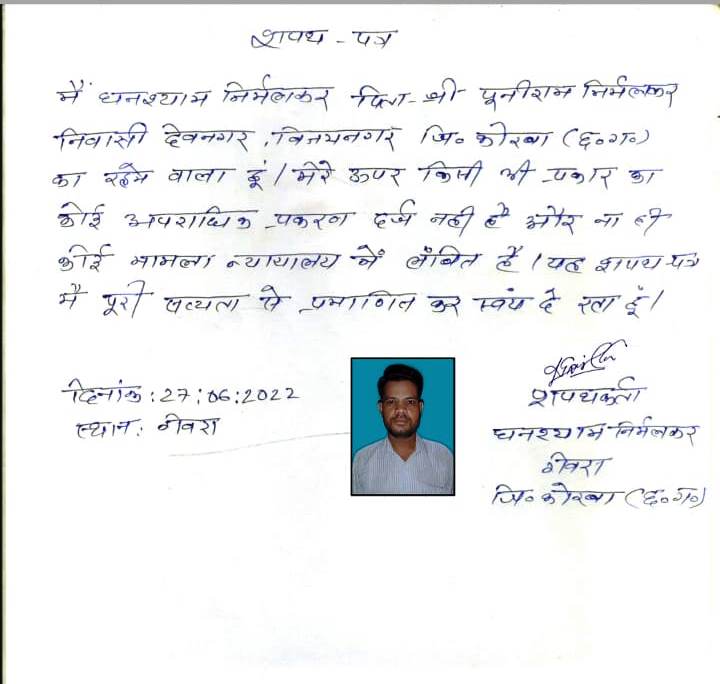 शपथ - पत्र
मैं घनश्याम निर्मलकर पिता श्री पूनीराम निर्मलकर
निवासी देवनगर, विजयनगर जि० कोरबा (छ०ग०)
का रहने वाला हूं। मेरे ऊपर किसी भी प्रकार का
कोई अपराधिक प्रकरण दर्ज नही है और ना ही
कोई मामला न्यायालय में लंबित है। यह शपथ-पत्र
मै पूरी सत्यता से प्रमाणित कर स्वंय दे रहा हूँ।
दिनांक : 27:06:2022
स्थान : गेवरा
शपथकर्ता
घनश्याम निर्मलकर
गेवरा
जि० कोरबा (छ०ग०)